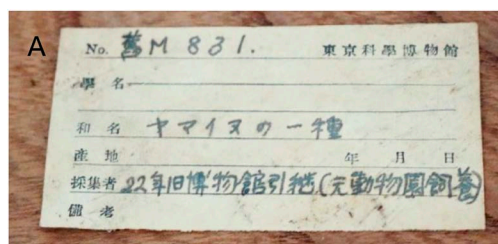 A
No. 舊M831. 東京科學博物館
學名
和名 ヤマイヌの一種
産地 年 月 日
採集者 22年旧博物館引継(元動物園飼養)
備考